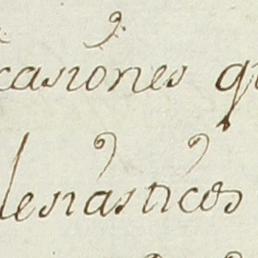 casiónes q
lesiásticos